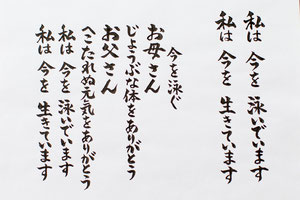 私は 今を 泳いでいます
私は 今を 生きています
今を泳ぐ
お母さん
じょうぶな体をありがとう
お父さん
へこたれぬ元気をありがとう
私は 今を 泳いでいます
私は 今を 生きています